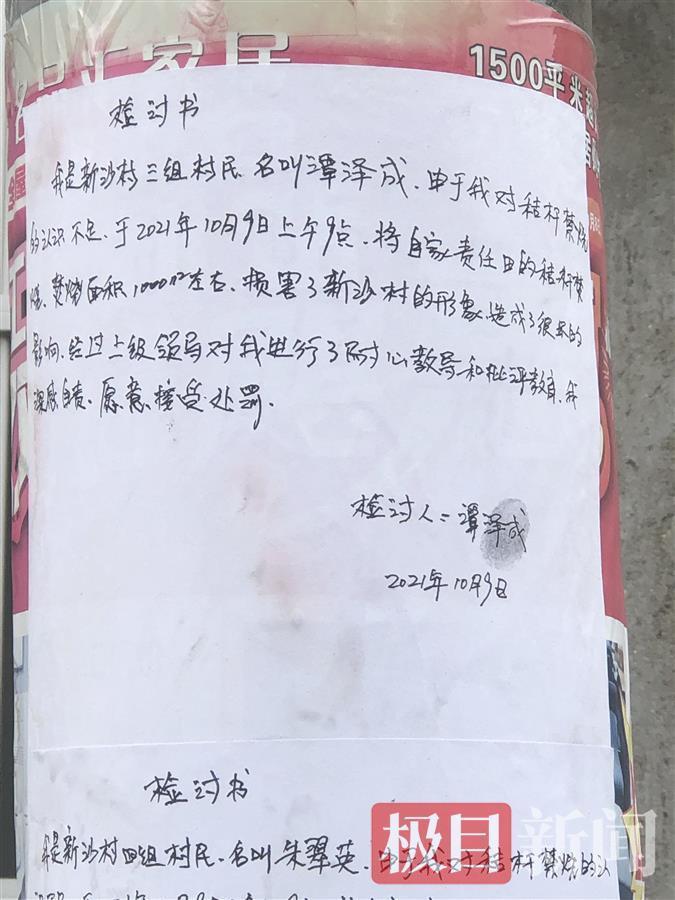 汇家居
1500平米超
检讨书
我是新沙村三组村民，名叫潭泽成，由于我对秸秆禁烧
的认识不足，于2021年10月9日上午9点，将自家责任田的秸秆焚
烧，焚烧面积1000㎡左右，损害了新沙村的形象，造成了很坏的
影响，经过上级领导对我进行了耐心教导和批评教育，我
深感自责，愿意接受处罚。
检讨人：潭泽成
2021年10月9日
检讨书
我是新沙村四组村民，名叫朱翠英，由于我对秸秆禁烧的认
极目新闻